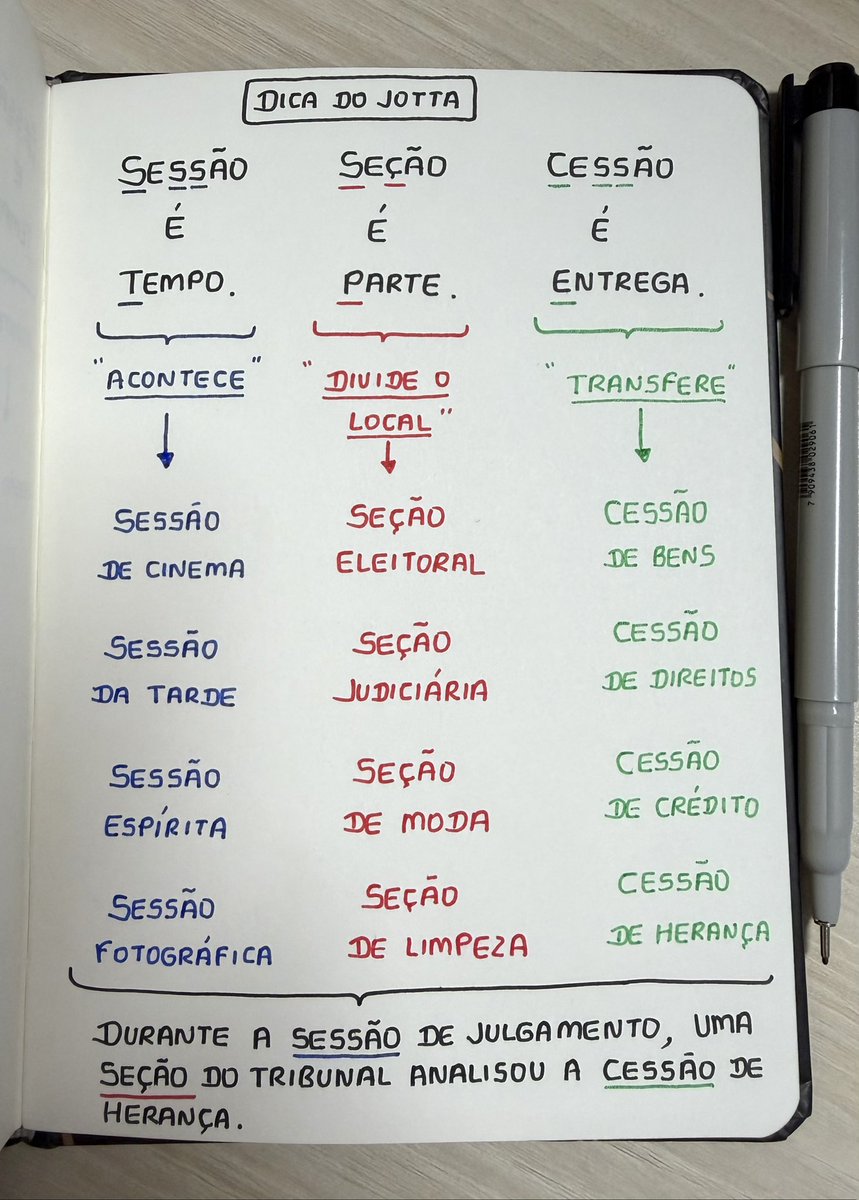 DICA DO JOTTA
SESSÃO
É
TEMPO.
"ACONTECE"
SESSÃO
DE CINEMA
SESSÃO
DA TARDE
SESSÃO
ESPÍRITA
SESSÃO
FOTOGRÁFICA
SEÇÃO
É
PARTE.
"DIVIDE O
LOCAL"
SEÇÃO
ELEITORAL
SEÇÃO
JUDICIÁRIA
SEÇÃO
DE MODA
SEÇÃO
DE LIMPEZA
CESSÃO
É
ENTREGA.
"TRANSFERE"
CESSÃO
DE BENS
CESSÃO
DE DIREITOS
CESSÃO
DE CRÉDITO
CESSÃO
DE HERANÇA
DURANTE A SESSÃO DE JULGAMENTO, UMA
SEÇÃO DO TRIBUNAL ANALISOU A CESSÃO DE
HERANÇA.